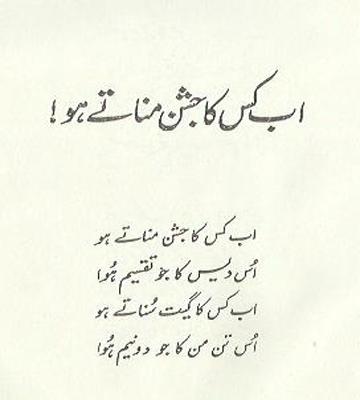 اب کس کا جشن مناتے ہو!
اب کس کا جشن مناتے ہو
اُس دیس کا جو تقسیم ہُوا
اب کس کا گیت سُناتے ہو
اُس تن من کا جو دونیم ہُوا